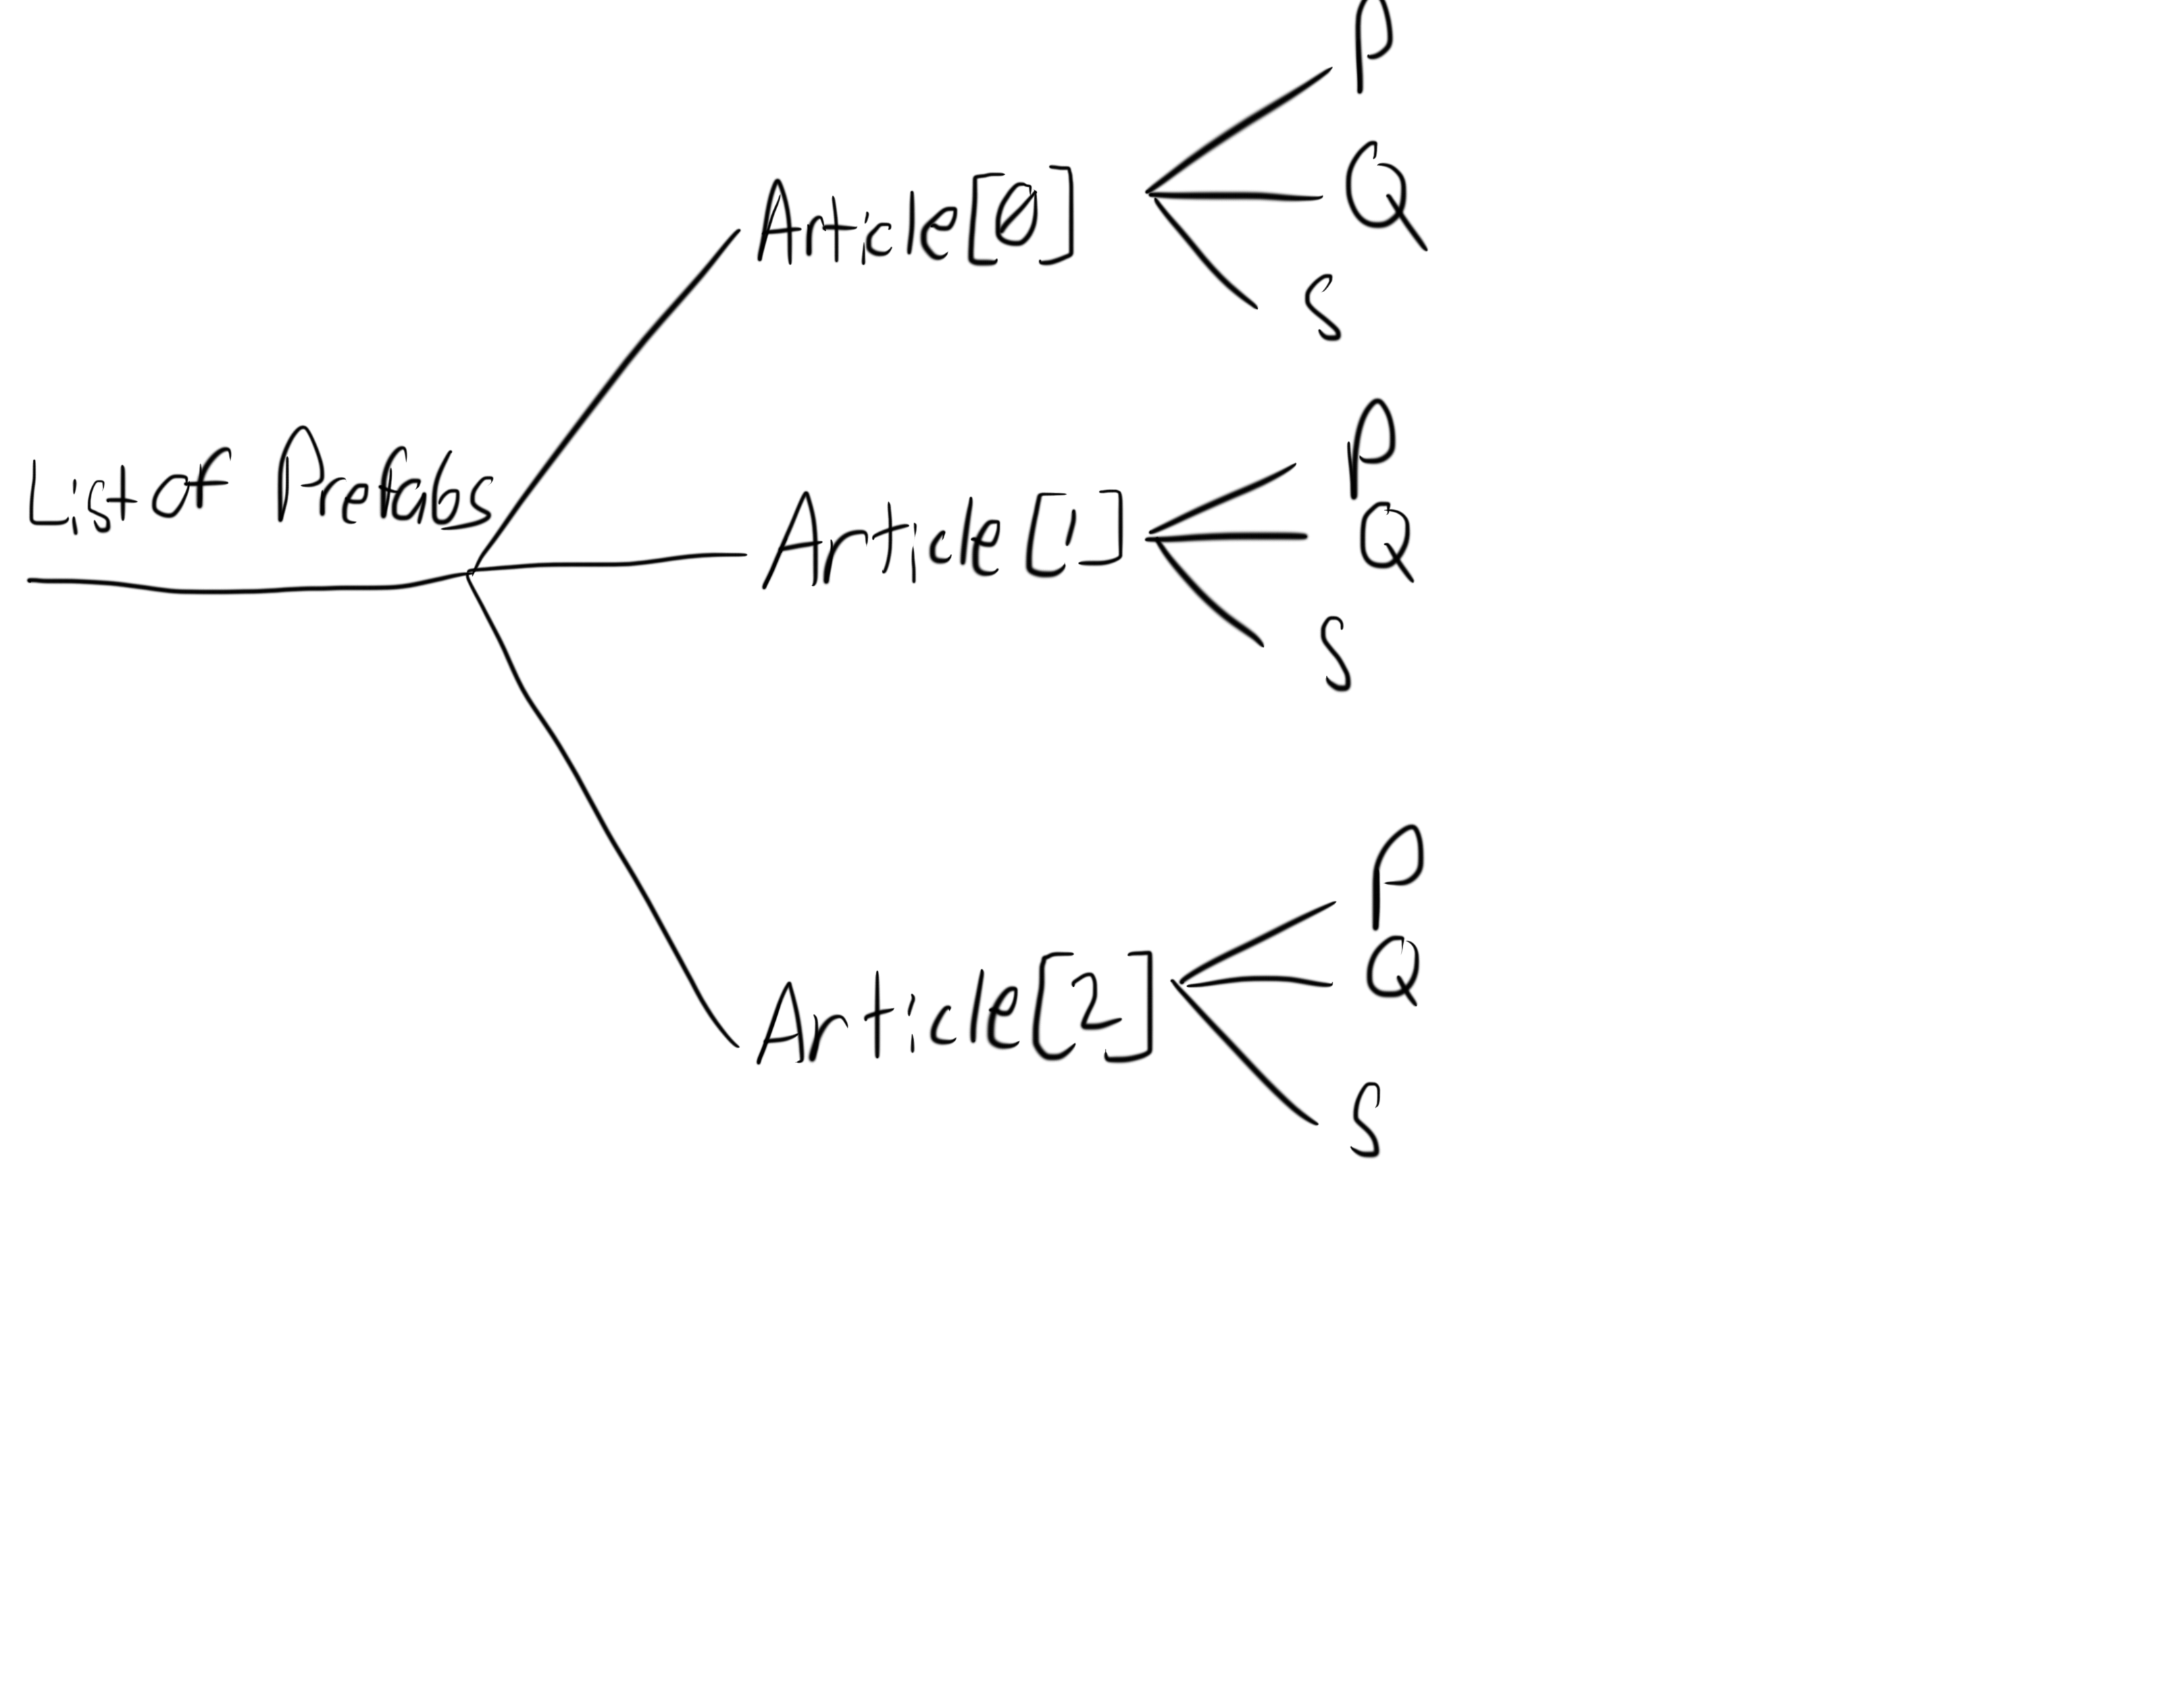 List of Prefabs
Article[0]
P
Q
S
Article[1]
P
Q
S
Article[2]
P
Q
S